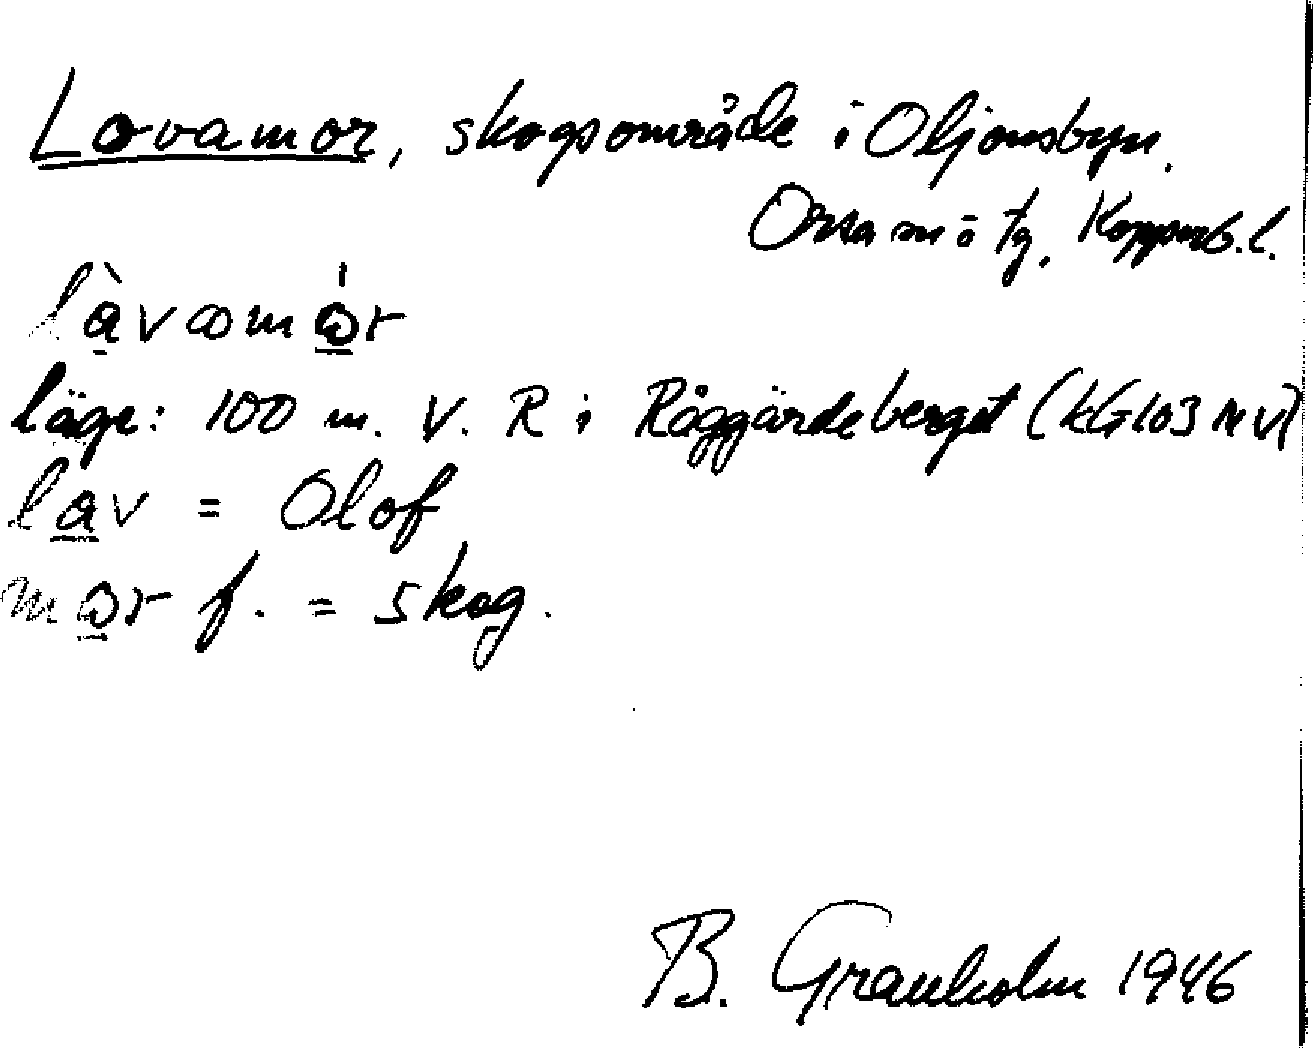 Lovamor, skogsområde i Oljonsbyn.
Orsa sn o tg, Kopparb. l.
làvamo̱r
läge: 100 m. V. R i Råggärdeberget (kG103 NV)
la̱v = Olof
mo̱r f. = skog.
B. Granholm 1946